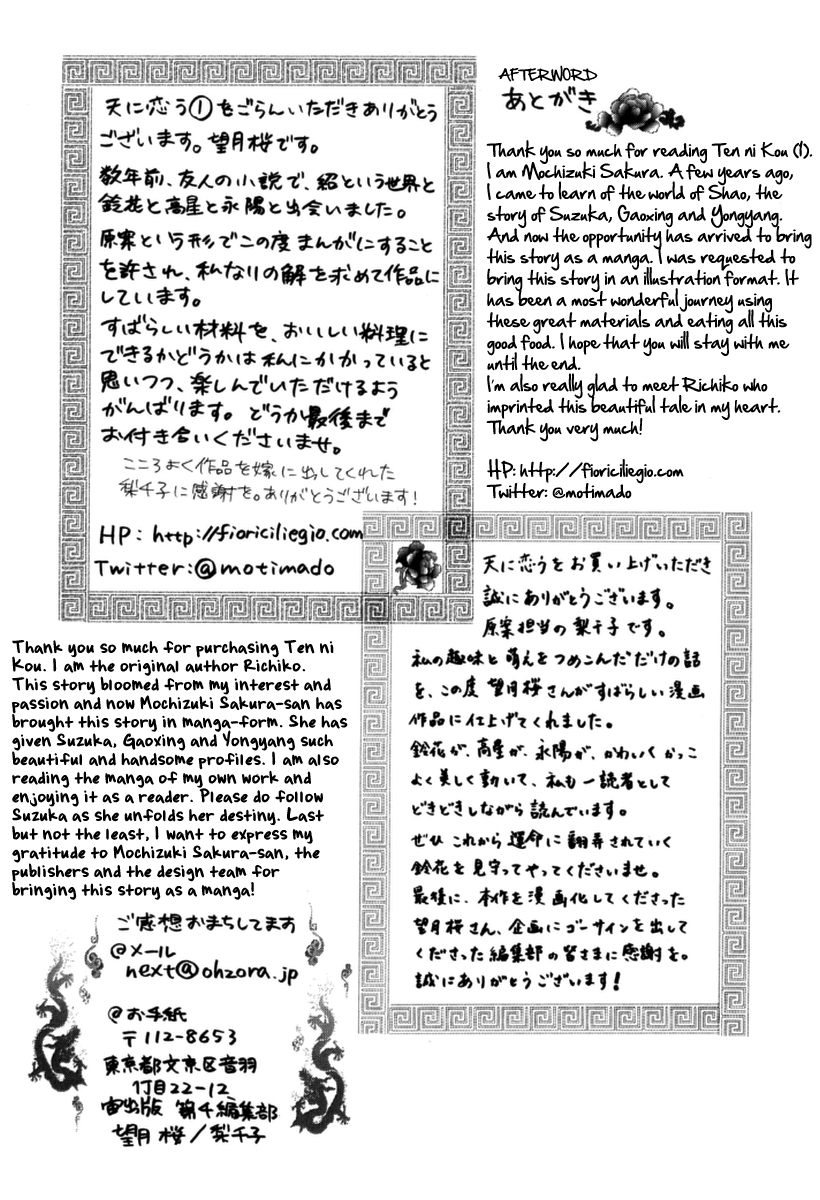 天に恋う①をごらんいただきありがとう
ございます。望月桜です。
数年前、友人の小説で、紹という世界と
鈴花と高星と永陽と出会いました。
原案という形でこの度まんがにすること
を許され、私なりの解を求めて作品に
しています。
すばらしい材料を、おいしい料理に
できるかどうかは私にかかっていると
思いつつ、楽しんでいただけるよう
がんばります。どうか最後まで
お付き合いくださいませ。
こころよく作品を嫁に出してくれた
梨千子に感謝を。ありがとうございます!
HP: http://fioriciliegio.com
Twitter:@motimado
AFTERWORD
あとがき
Thank you so much for reading Ten ni Kou (1).
I am Mochizuki Sakura. A few years ago,
I came to learn of the world of Shao, the
story of Suzuka, Gaoxing and Yongyang.
And now the opportunity has arrived to bring
this story as a manga. I was requested to
bring this story in an illustration format. It
has been a most wonderful journey using
these great materials and eating all this
good food. I hope that you will stay with me
until the end.
I'm also really glad to meet Richiko who
imprinted this beautiful tale in my heart.
Thank you very much!
HP: http://fioriciliegio.com
Twitter: @motimado
天に恋うをお買い上げいただき
誠にありがとうございます。
原案担当の梨千子です。
私の趣味と萌えをつめこんだだけの話
を、この度望月桜さんがすばらしい漫画
作品に仕上げてくれました。
鈴花が、高星が、永陽が、かわいくかっこ
よく美しく動いて、私も一読者として
どきどきしながら読んでいます。
ぜひこれから運命に翻弄されていく
鈴花を見守ってやってくださいませ。
最後に、本作を漫画化してくださった
望月桜さん、企画にゴーサインを出して
くださった編集部の皆さまに感謝を。
誠にありがとうございます!
Thank you so much for purchasing Ten ni
Kou. I am the original author Richiko.
This story bloomed from my interest and
passion and now Mochizuki Sakura-san has
brought this story in manga-form. She has
given Suzuka, Gaoxing and Yongyang such
beautiful and handsome profiles. I am also
reading the manga of my own work and
enjoying it as a reader. Please do follow
Suzuka as she unfolds her destiny. Last
but not the least, I want to express my
gratitude to Mochizuki Sakura-san, the
publishers and the design team for
bringing this story as a manga!
ご感想おまちしてます
@メール
next@ohzora.jp
@お手紙
〒112-8653
東京都文京区音羽
1丁目22-12
宙出版 第4編集部
望月桜/梨千子